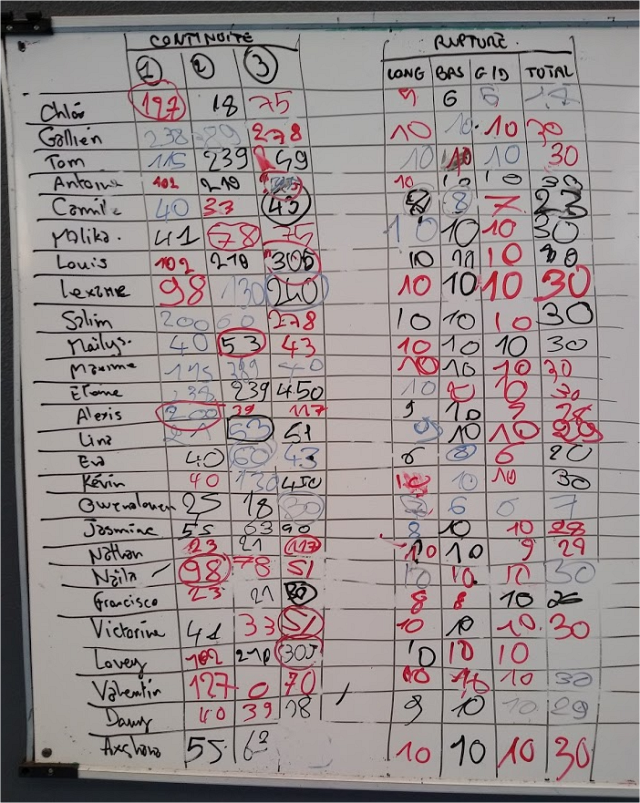 CONTINUITE RUPTURE.
1 2 3 LONG BAS G/D TOTAL
Chloé 197 18 75 9 6
Gallien 238 278 10 10 10 30
Tom 115 239 49 10 10 10 30
Antoine 102 210 10 10 10 30
Camille 40 33 45 8 8 7 23
Malika. 41 78 75 10 10 10 30
Louis 102 210 305 10 10 10 30
Lexane 98 130 240 10 10 10 30
Salim 200 60 278 10 10 10 30
Maïlys. 40 53 43 10 10 10 30
Maxime 40 10 10 10 30
239 450 10 10 30
Alexis 200 39 117 9 10 9 28
Lina 21 63 51 9 10 10 29
Eva 40 60 43 6 8 6 20
Kévin 40 130 450 10 10 10 30
25 18 30 6 6 7
Jasmine 55 63 90 8 10 10 28
Nathan 23 21 117 10 10 9 29
Naïla 98 78 51 10 10 10 30
Francisco 23 21 30 8 8 10 26
Victorine 41 33 51 10 10 10. 30
Lovey 102 210 305 10 10 10
Valentin 127 0 70 10 10 10 30
Dany 40 39 18 9 10 10 29
55 10 10 10 30